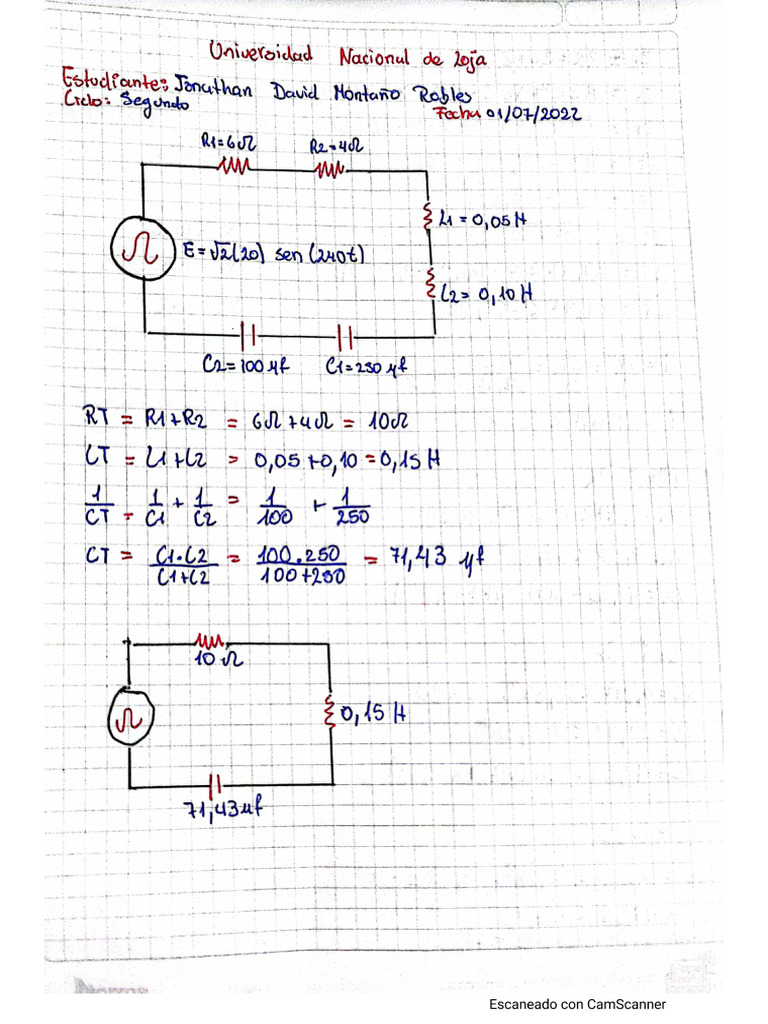 Universidad Nacional de Loja
Estudiante: Jonathan David Montaño Robles
Ciclo: Segundo
Fecha 01/07/2022
R1=6Ω R2=4Ω
L1=0,05H
E=√2(20) sen(240t)
L2=0,10H
C2=100μf C1=250μf
RT = R1+R2 = 6Ω+4Ω = 10Ω
LT = L1+L2 = 0,05+0,10=0,15H
1/CT = 1/C1 + 1/C2 = 1/100 + 1/250
CT = C1·C2/C1+C2 = 100.250/100+250 = 71,43 μf
10Ω
0,15H
71,43μf
Norma
Escaneado con CamScanner